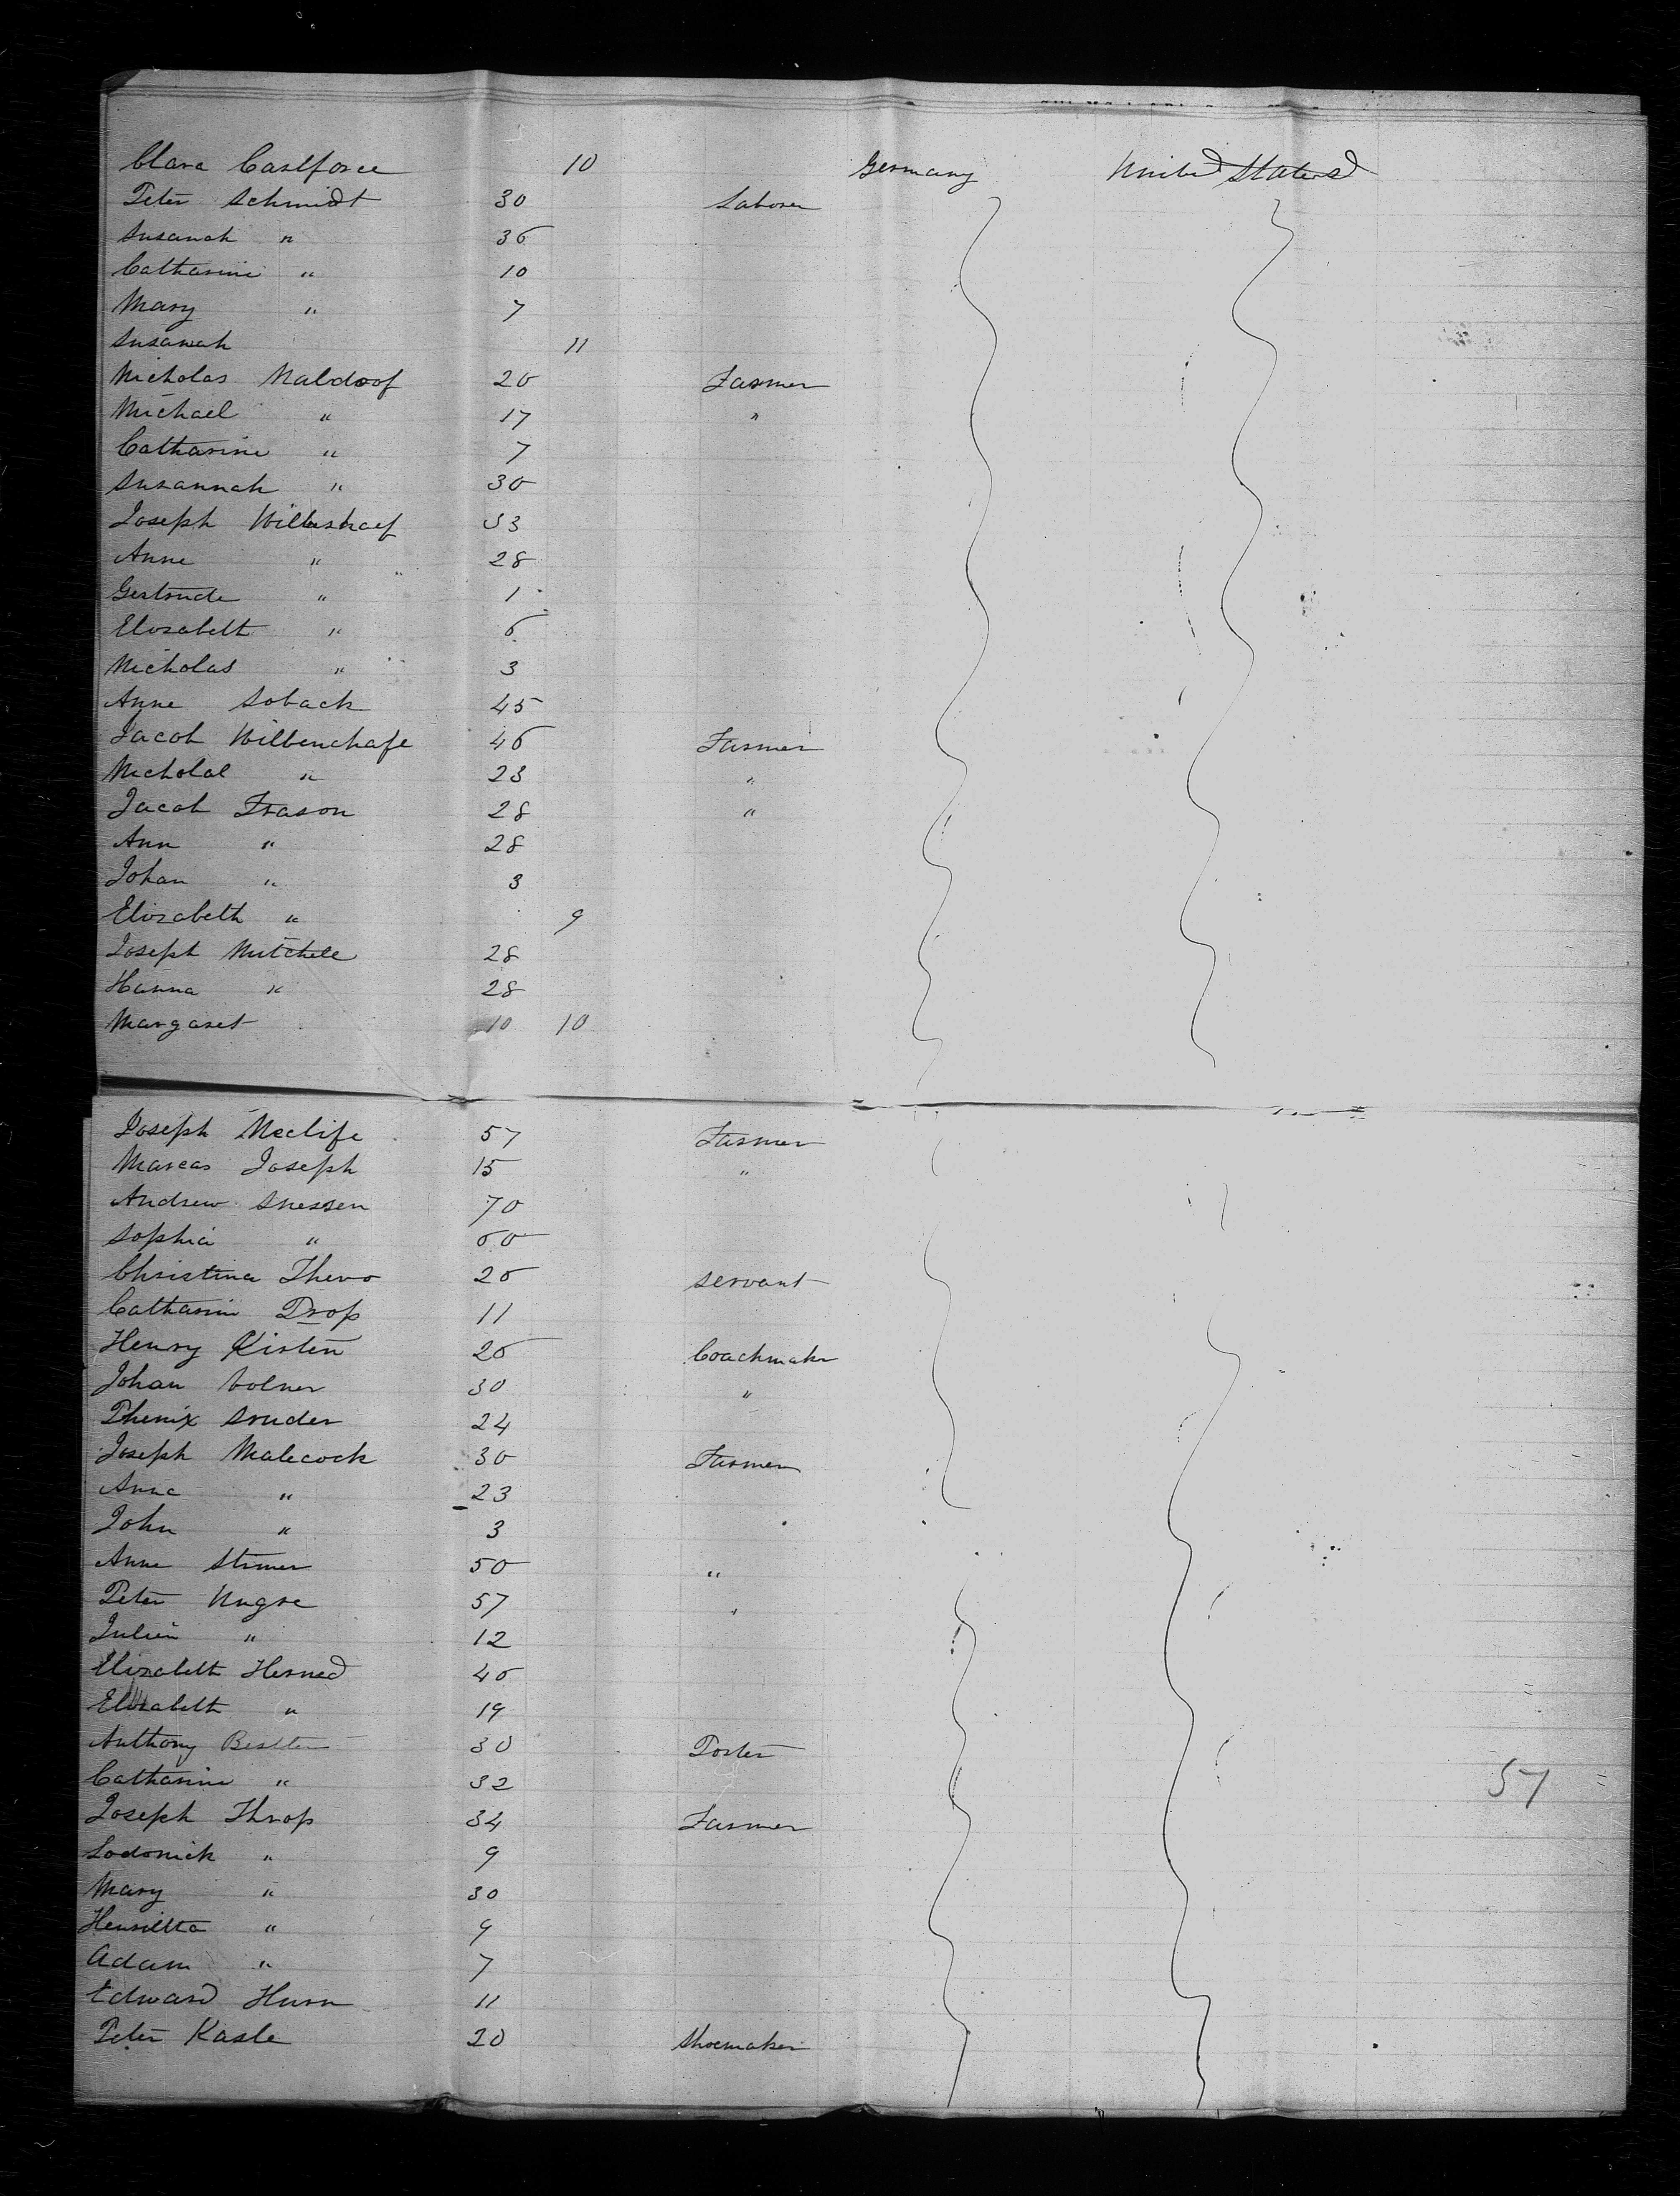 Clara Carlforce 10 Germany United States
Peter Schmidt 30 Laborer
Susanah " 36
Catharine " 10
Mary " 7
Susanah 11
Nicholas Naldoof 20 Farmer
Michael " 17 "
Catharine " 7
Susannah " 30
Joseph Wilbeshaef 33
Anne " 28
Gertrude " 1
Elizabett " 6
Nicholas " 3
Anne Soback 45
Jacob Wilbenchafe 46 Farmer
Nicholal " 23 "
Jacob Frason 28 "
Ann " 28
Johan " 3
Elizabeth " 9
Joseph Mutchele 28
Hanna " 28
Margaret 10 10
Joseph Meclife 57 Farmer
Marcas Joseph 15 "
Andrew Snessen 70
Sophia " 60
Christina Thevo 26 Servant
Catharin Drop 11
Henry Kirten 26 Coachmaker
Johan Volner 30 "
Phenix Sruder 24
Joseph Malecock 30 Farmer
Anne " 23
John " 3
Anne Stimer 50 "
Peter Nugre 57 "
Julien " 12
Elizabett Herned 46
Elizabett " 19
Anthony 30 Porter
Catharine " 32
57
Joseph Throp 34 Farmer
Lodonick " 9
Mary " 30
Henrietta " 9
Adam " 7
Edward Hurn 11
Peter Kasle 20 Shoemaker